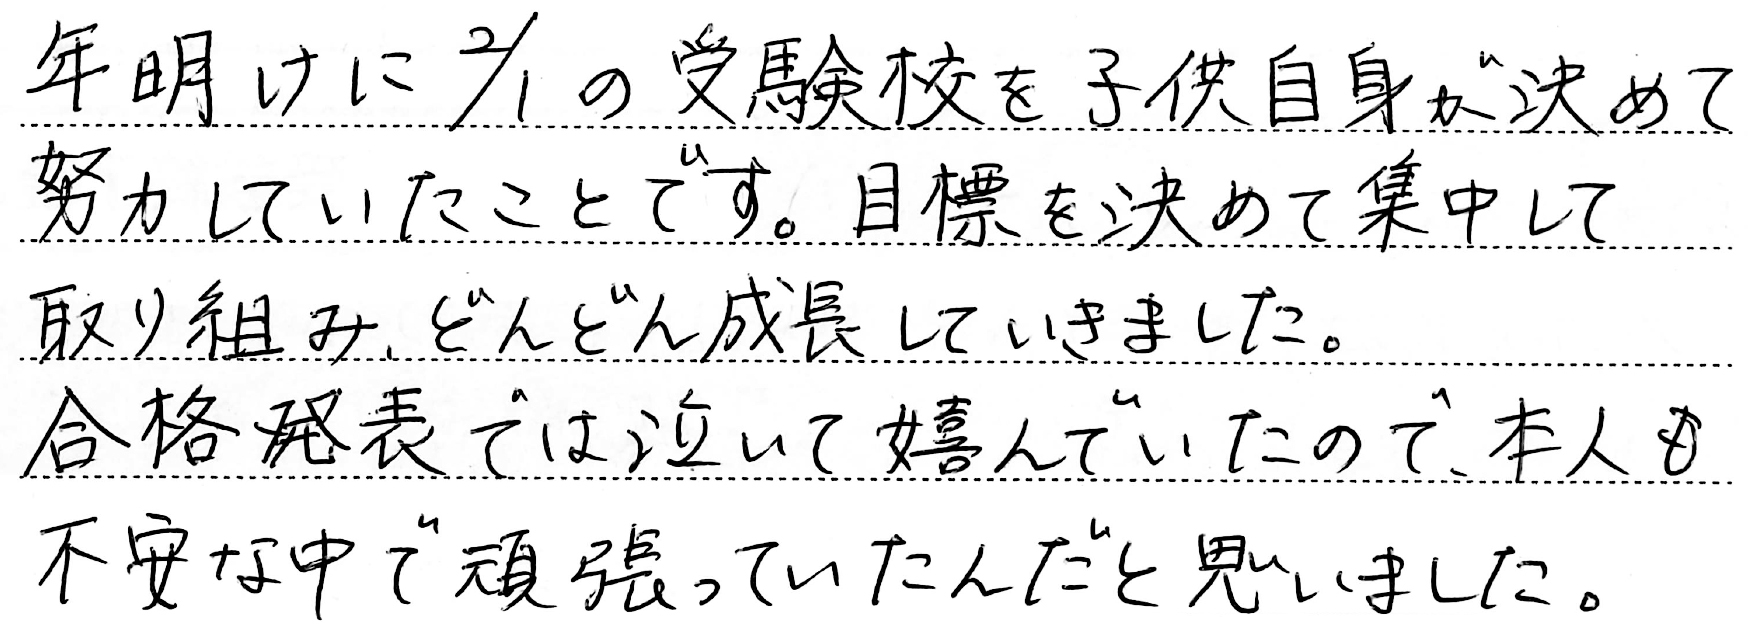 年明けに2/1の受験校を子供自身が決めて
努力していたことです。目標を決めて集中して
取り組み、どんどん成長していきました。
合格発表では泣いて嬉んでいたので、本人も
不安な中で頑張っていたんだと思いました。